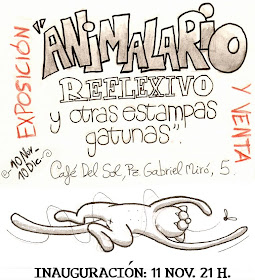 EXPOSICIÓN
"ANIMALARIO
REFLEXIVO
y otras estampas
gatunas".
Y VENTA
10 Nov-
10 Dic
Café Del Sol, Pz Gabriel Miró, 5.
INAUGURACIÓN: 11 NOV. 21 H.